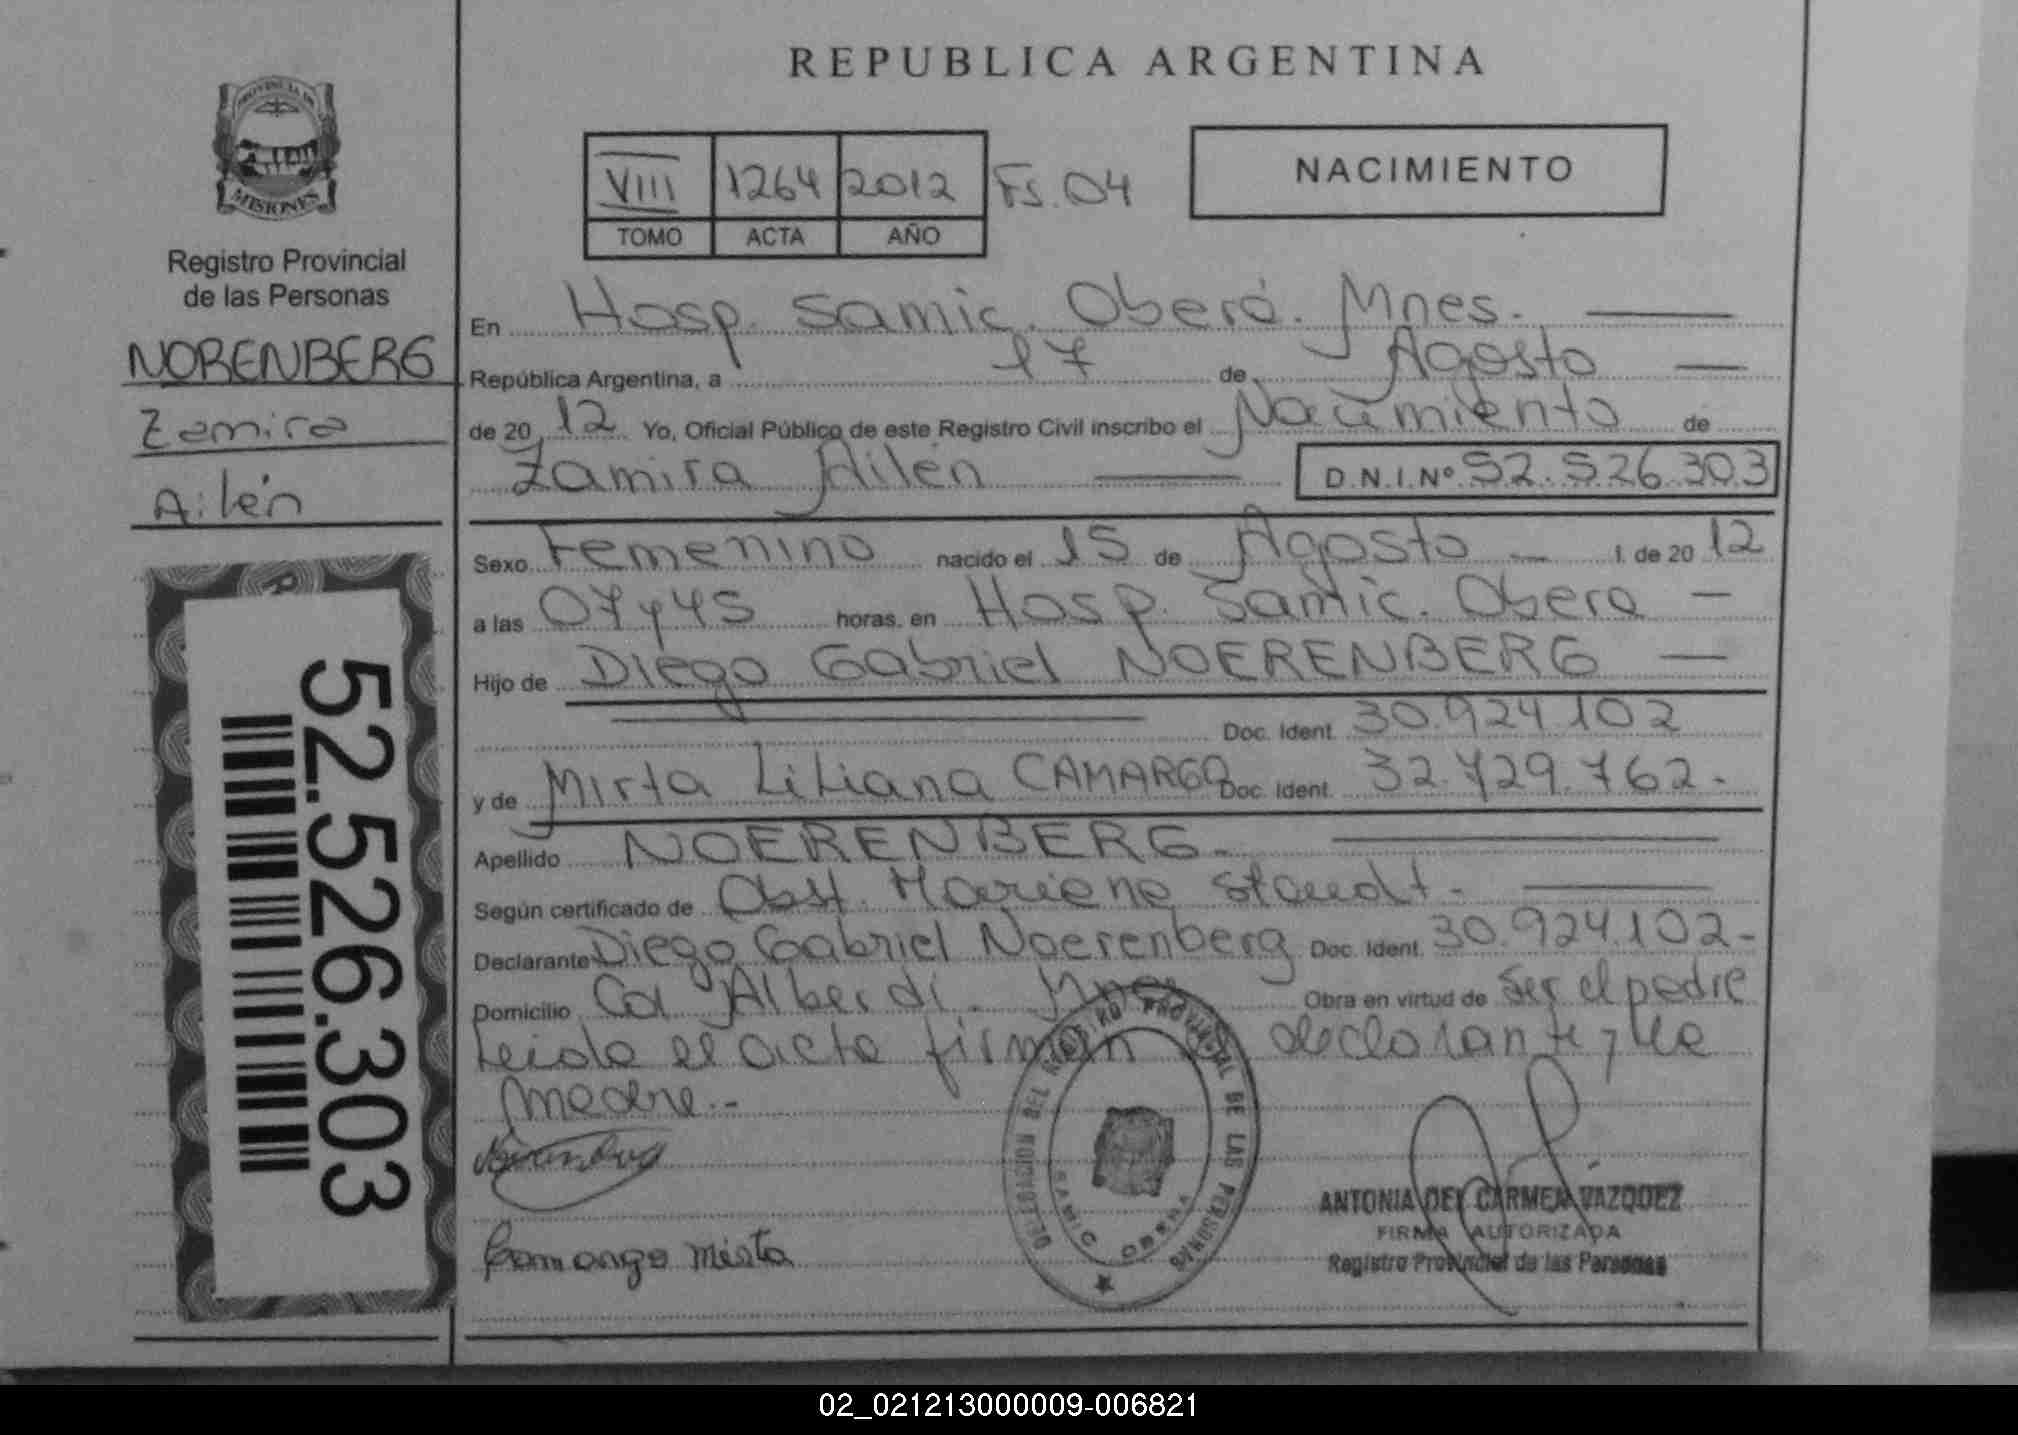 REPUBLICA ARGENTINA
PROVINCIA DE
MISIONES
Registro Provincial
de las Personas
NORENBERG
Zamira
Ailén
52.526.303
VIII 1264 2012 Fs. 04
TOMO ACTA AÑO
NACIMIENTO
En Hosp. Samic. Oberá. Mnes.
República Argentina, a 17 de Agosto
de 20 12 Yo, Oficial Público de este Registro Civil inscribo el Nacimiento de
Zamira Ailén D.N.I.Nº 52.526.303
Sexo Femenino nacido el 15 de Agosto l. de 20 12
a las 07 y 45 horas. en Hosp. Samic. Obera
Hijo de Diego Gabriel NOERENBERG
Doc. Ident. 30.924.102
y de Mirta Liliana CAMARGO Doc. Ident. 32.729.762.
Apellido NOERENBERG.
Según certificado de Obst. Mariene Staudt.
Declarante Diego Gabriel Noerenberg Doc. Ident. 30.924.102-
Domicilio Col Alberdi. Mnes Obra en virtud de Ser el padre
Leida el acta firman el declarante y la
madre.-
DELEGACION DEL REGISTRO PROVINCIAL DE LAS PERSONAS
SAMIC OBERA
Camargo Mirta
ANTONIA DEL CARMEN VAZQUEZ
FIRMA AUTORIZADA
Registro Provincial de las Personas
02_021213000009-006821